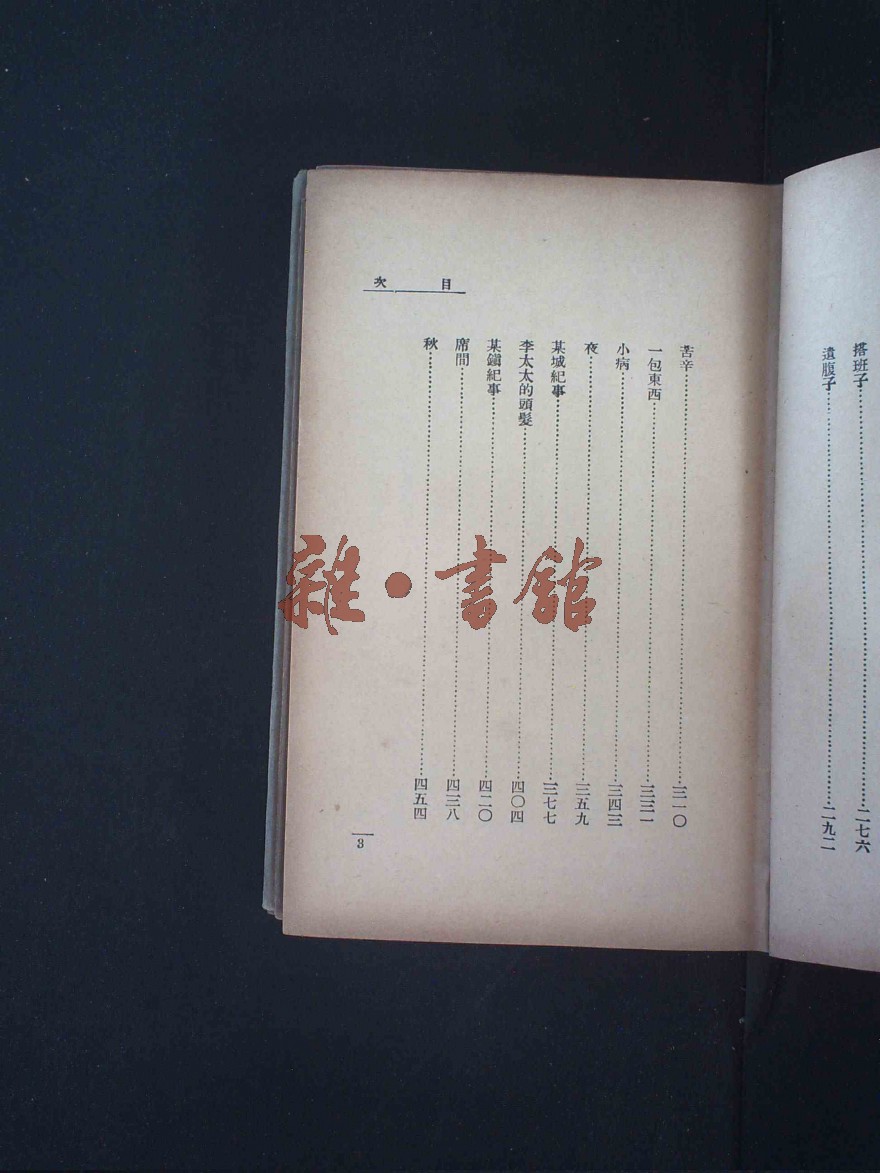 搭班子⋯⋯二七六
遺腹子⋯⋯二九二
目次
苦辛⋯⋯三一〇
一包東西⋯⋯三三一
小病⋯⋯三四三
夜⋯⋯三五九
某城紀事⋯⋯三七七
李太太的頭髮⋯⋯四〇四
某鎭紀事⋯⋯四二〇
席間⋯⋯四三八
秋⋯⋯四五四
3
雜·書館